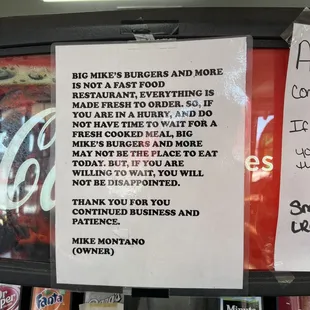 BIG MIKE'S BURGERS AND MORE
IS NOT A FAST FOOD
RESTAURANT, EVERYTHING IS
MADE FRESH TO ORDER. SO, IF
YOU ARE IN A HURRY, AND DO
NOT HAVE TIME TO WAIT FOR A
FRESH COOKED MEAL, BIG
MIKE'S BURGERS AND MORE
MAY NOT BE THE PLACE TO EAT
TODAY. BUT, IF YOU ARE
WILLING TO WAIT, YOU WILL
NOT BE DISAPPOINTED.
THANK YOU FOR YOU
CONTINUED BUSINESS AND
PATIENCE.
MIKE MONTANO
(OWNER)
es
A
If
Fanta
Minute